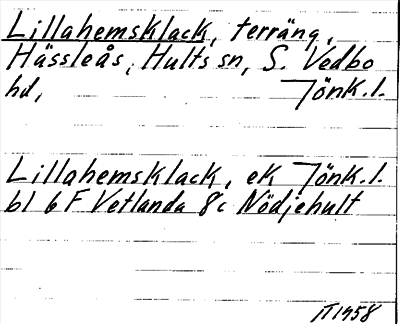 Lillahemsklack, terräng,
Hässleås, Hults sn, S. Vedbo
hd, Jönk.l.
Lillahemsklack, ek Jönk.l.
bl 6 F Vetlanda 8c Nödjehult
IT1958